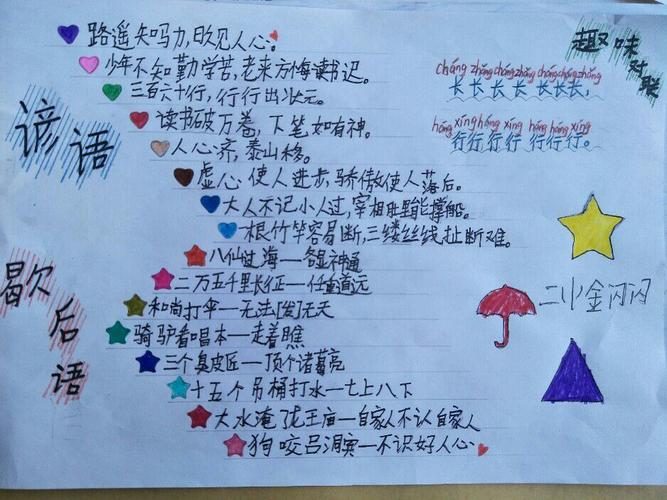 谚语
路遥知马力,日久见人心。
少年不知勤学苦,老来方悔读书迟。
三百六十行,行行出状元。
读书破万卷,下笔如有神。
人心齐,泰山移。
虚心使人进步,骄傲使人落后。
大人不记小人过,宰相肚里能撑船。
一根竹竿容易断,三缕丝线扯断难。
歇后语
八仙过海—各显神通
二万五千里长征—任重道远
和尚打伞—无法[发]无天
骑驴看唱本—走着瞧
三个臭皮匠—顶个诸葛亮
十五个吊桶打水—七上八下
大水淹龙王庙—自家人不认自家人
狗咬吕洞宾—不识好人心
趣味对联
cháng zhǎng cháng zhǎng cháng cháng zhǎng
长长长长 长长长,
háng xíng háng xíng háng háng xíng
行行行行 行行行。
二小金闪闪